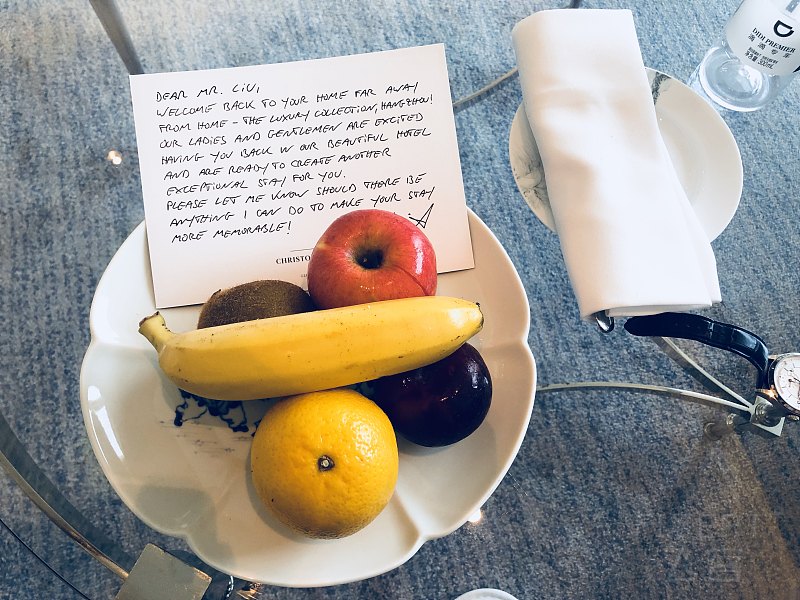 DEAR MR. LIU,
WELCOME BACK TO YOUR HOME FAR AWAY
FROM HOME - THE LUXURY COLLECTION, HANGZHOU!
OUR LADIES AND GENTLEMEN ARE EXCITED
HAVING YOU BACK IN OUR BEAUTIFUL HOTEL
AND ARE READY TO CREATE ANOTHER
EXCEPTIONAL STAY FOR YOU.
PLEASE LET ME KNOW SHOULD THERE BE
ANYTHING I CAN DO TO MAKE YOUR STAY
MORE MEMORABLE!
DIDI PREMIER
滴滴专车